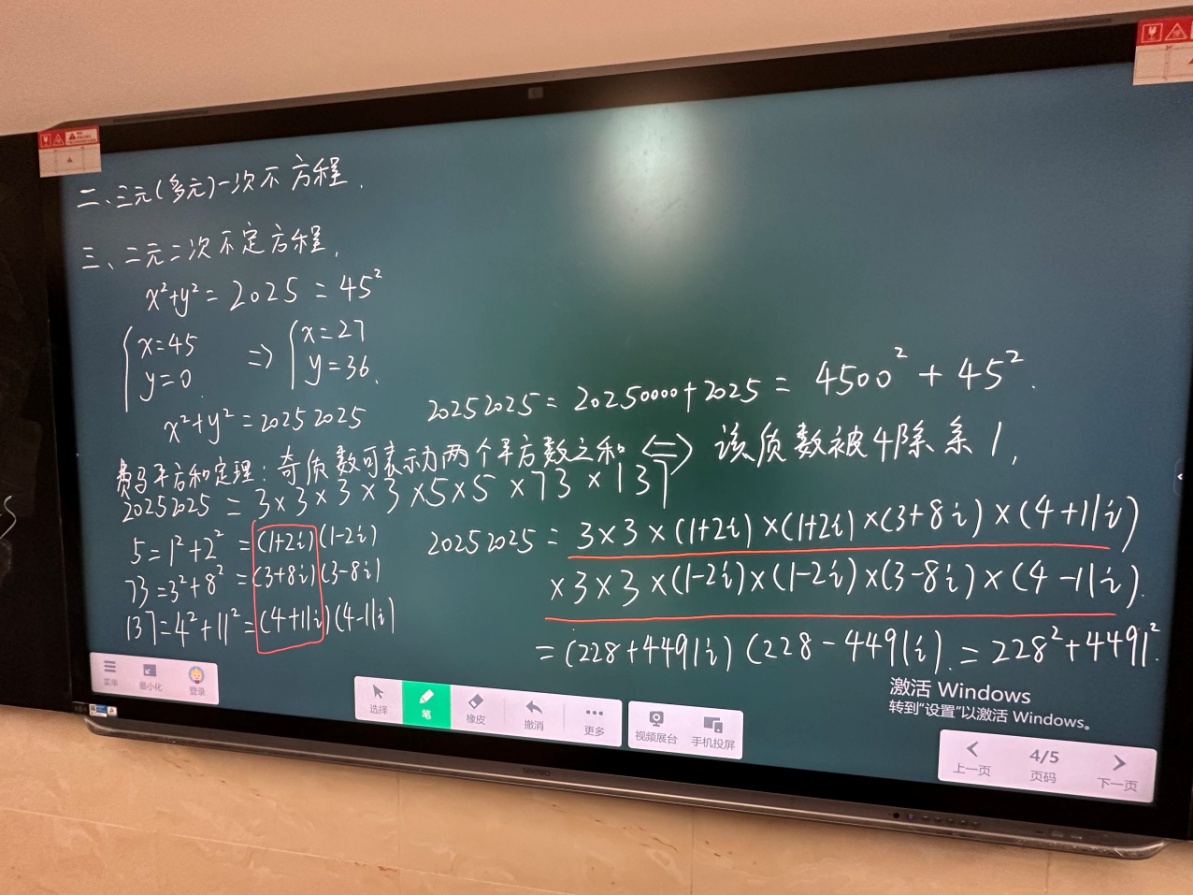 二、三元(多元)一次不方程.
三、二元二次不定方程.
x²+y²=2025=45²
{x=45 y=0. => {x=27 y=36.
x²+y²=20252025
20252025=20250000+2025=4500²+45².
费马平方和定理:奇质数可表示为两个平方数之和 <=> 该质数被4除余1,
20252025=3×3×3×3×5×5×73×137
5=1²+2²=(1+2i)(1-2i)
73=3²+8²=(3+8i)(3-8i)
137=4²+11²=(4+11i)(4-11i)
20252025=3×3×(1+2i)×(1+2i)×(3+8i)×(4+11i)
×3×3×(1-2i)×(1-2i)×(3-8i)×(4-11i).
=(228+4491i)(228-4491i).=228²+4491².
激活 Windows
转到"设置"以激活 Windows。
菜单 最小化 登录
选择 笔 橡皮 撤消 更多
视频展台 手机投屏
上一页 4/5 页码 下一页